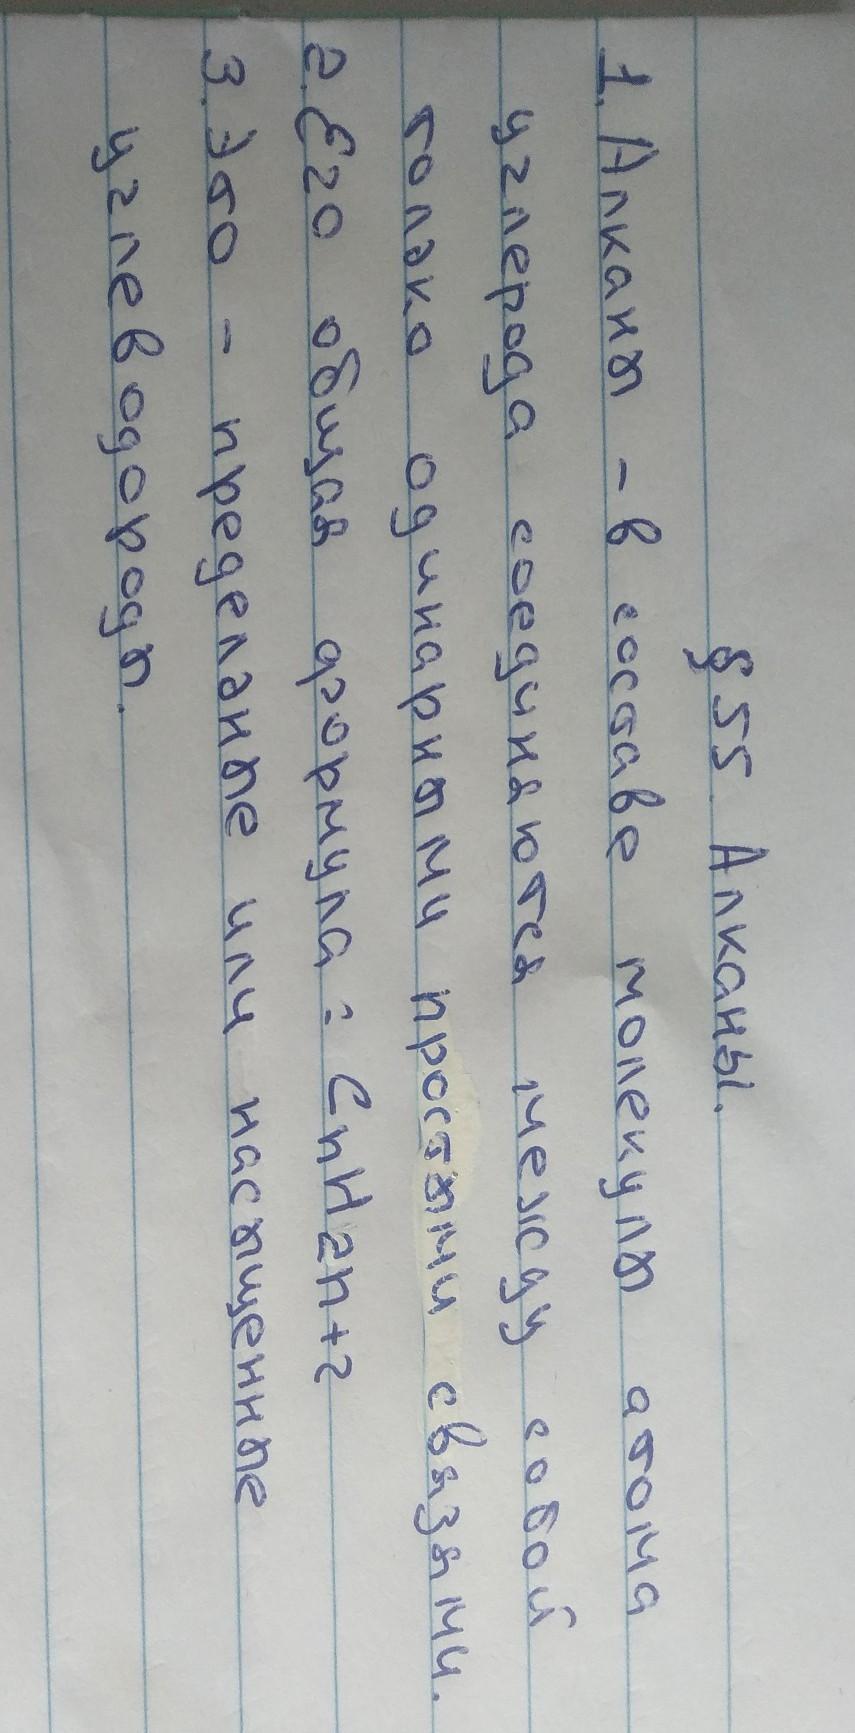 § 55. Алканы.
1. Алканы - в составе молекулы атома
углерода соединяются между собой
только одинарными простыми связями.
2. Его общая формула: CnH2n+2
3. Это - предельные или насыщенные
углеводороды.